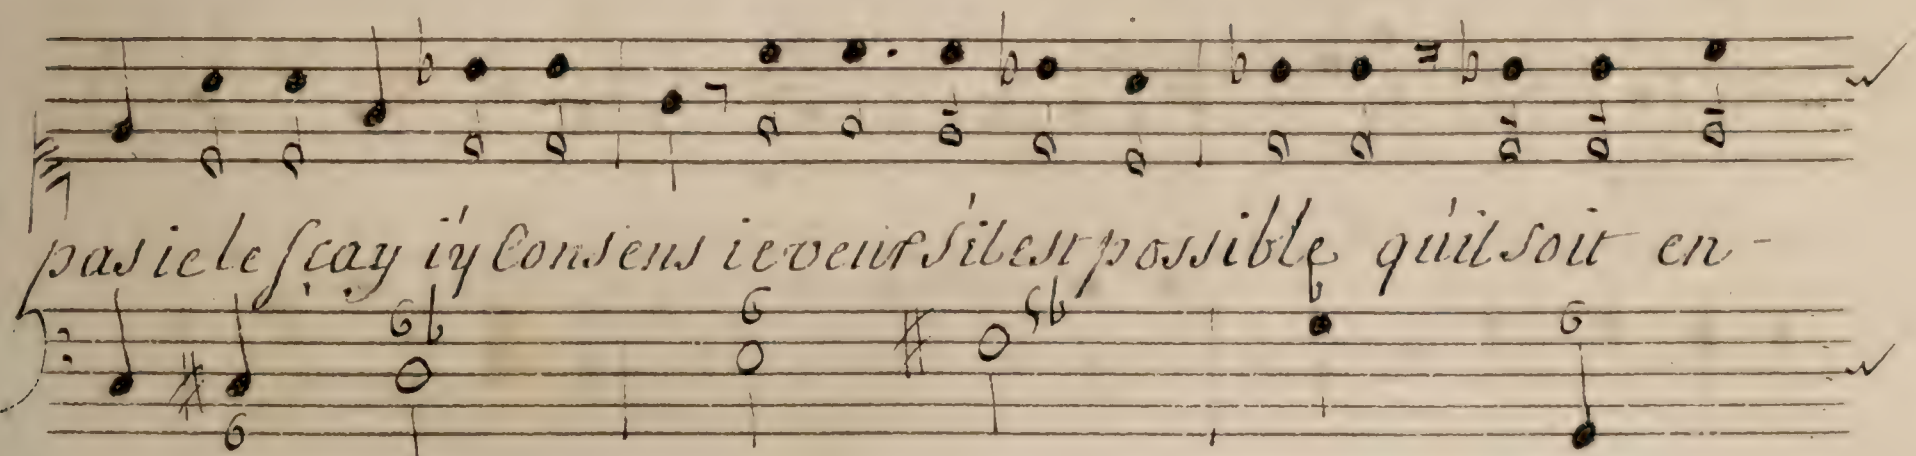 pas ie le sçay i'y Consens ie veux s'il est possible qu'il soit en-